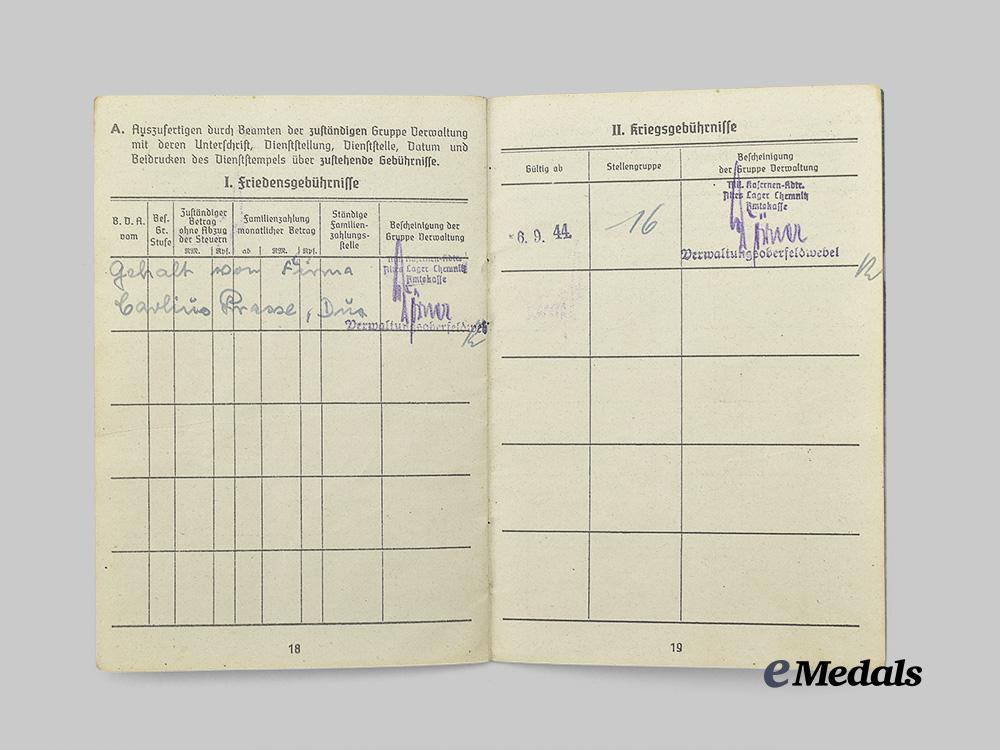 A. Auszufertigen durch Beamten der zuständigen Gruppe Verwaltung
mit deren Unterschrift, Dienststellung, Dienststelle, Datum und
Beidrucken des Dienststempels über zustehende Gebührnisse.
I. Friedensgebührnisse
B. D. A.
vom
Bes.
Gr.
Stufe
Zuständiger
Betrag
ohne Abzug
der Steuern
RM. Rpf.
Familienzahlung
monatlicher Betrag
ab RM. Rpf.
Ständige
Familien-
zahlungs-
stelle
Bescheinigung der
Gruppe Verwaltung
Gehalt von Firma
Carlius Prasse,
Altes Lager Chemnitz
Amtskasse
Verwaltungsoberfeldweb
18
II. Kriegsgebührnisse
Gültig ab
Stellengruppe
Bescheinigung
der Gruppe Verwaltung
6. 9. 44
16
Mil. Kasernen-Kdtr.
Altes Lager Chemnitz
Amtskasse
Verwaltungsoberfeldwebel
19
eMedals